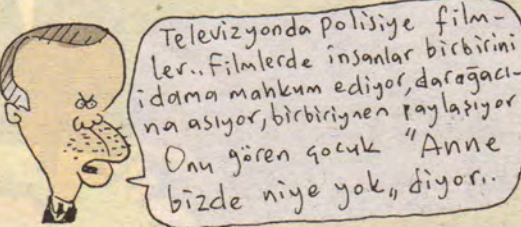 Televizyonda polisiye film-
ler.. Filmlerde insanlar birbirini
idama mahkum ediyor, darağacı-
na asıyor, birbiriynen paylaşıyor
Onu gören çocuk "Anne
bizde niye yok„ diyor..